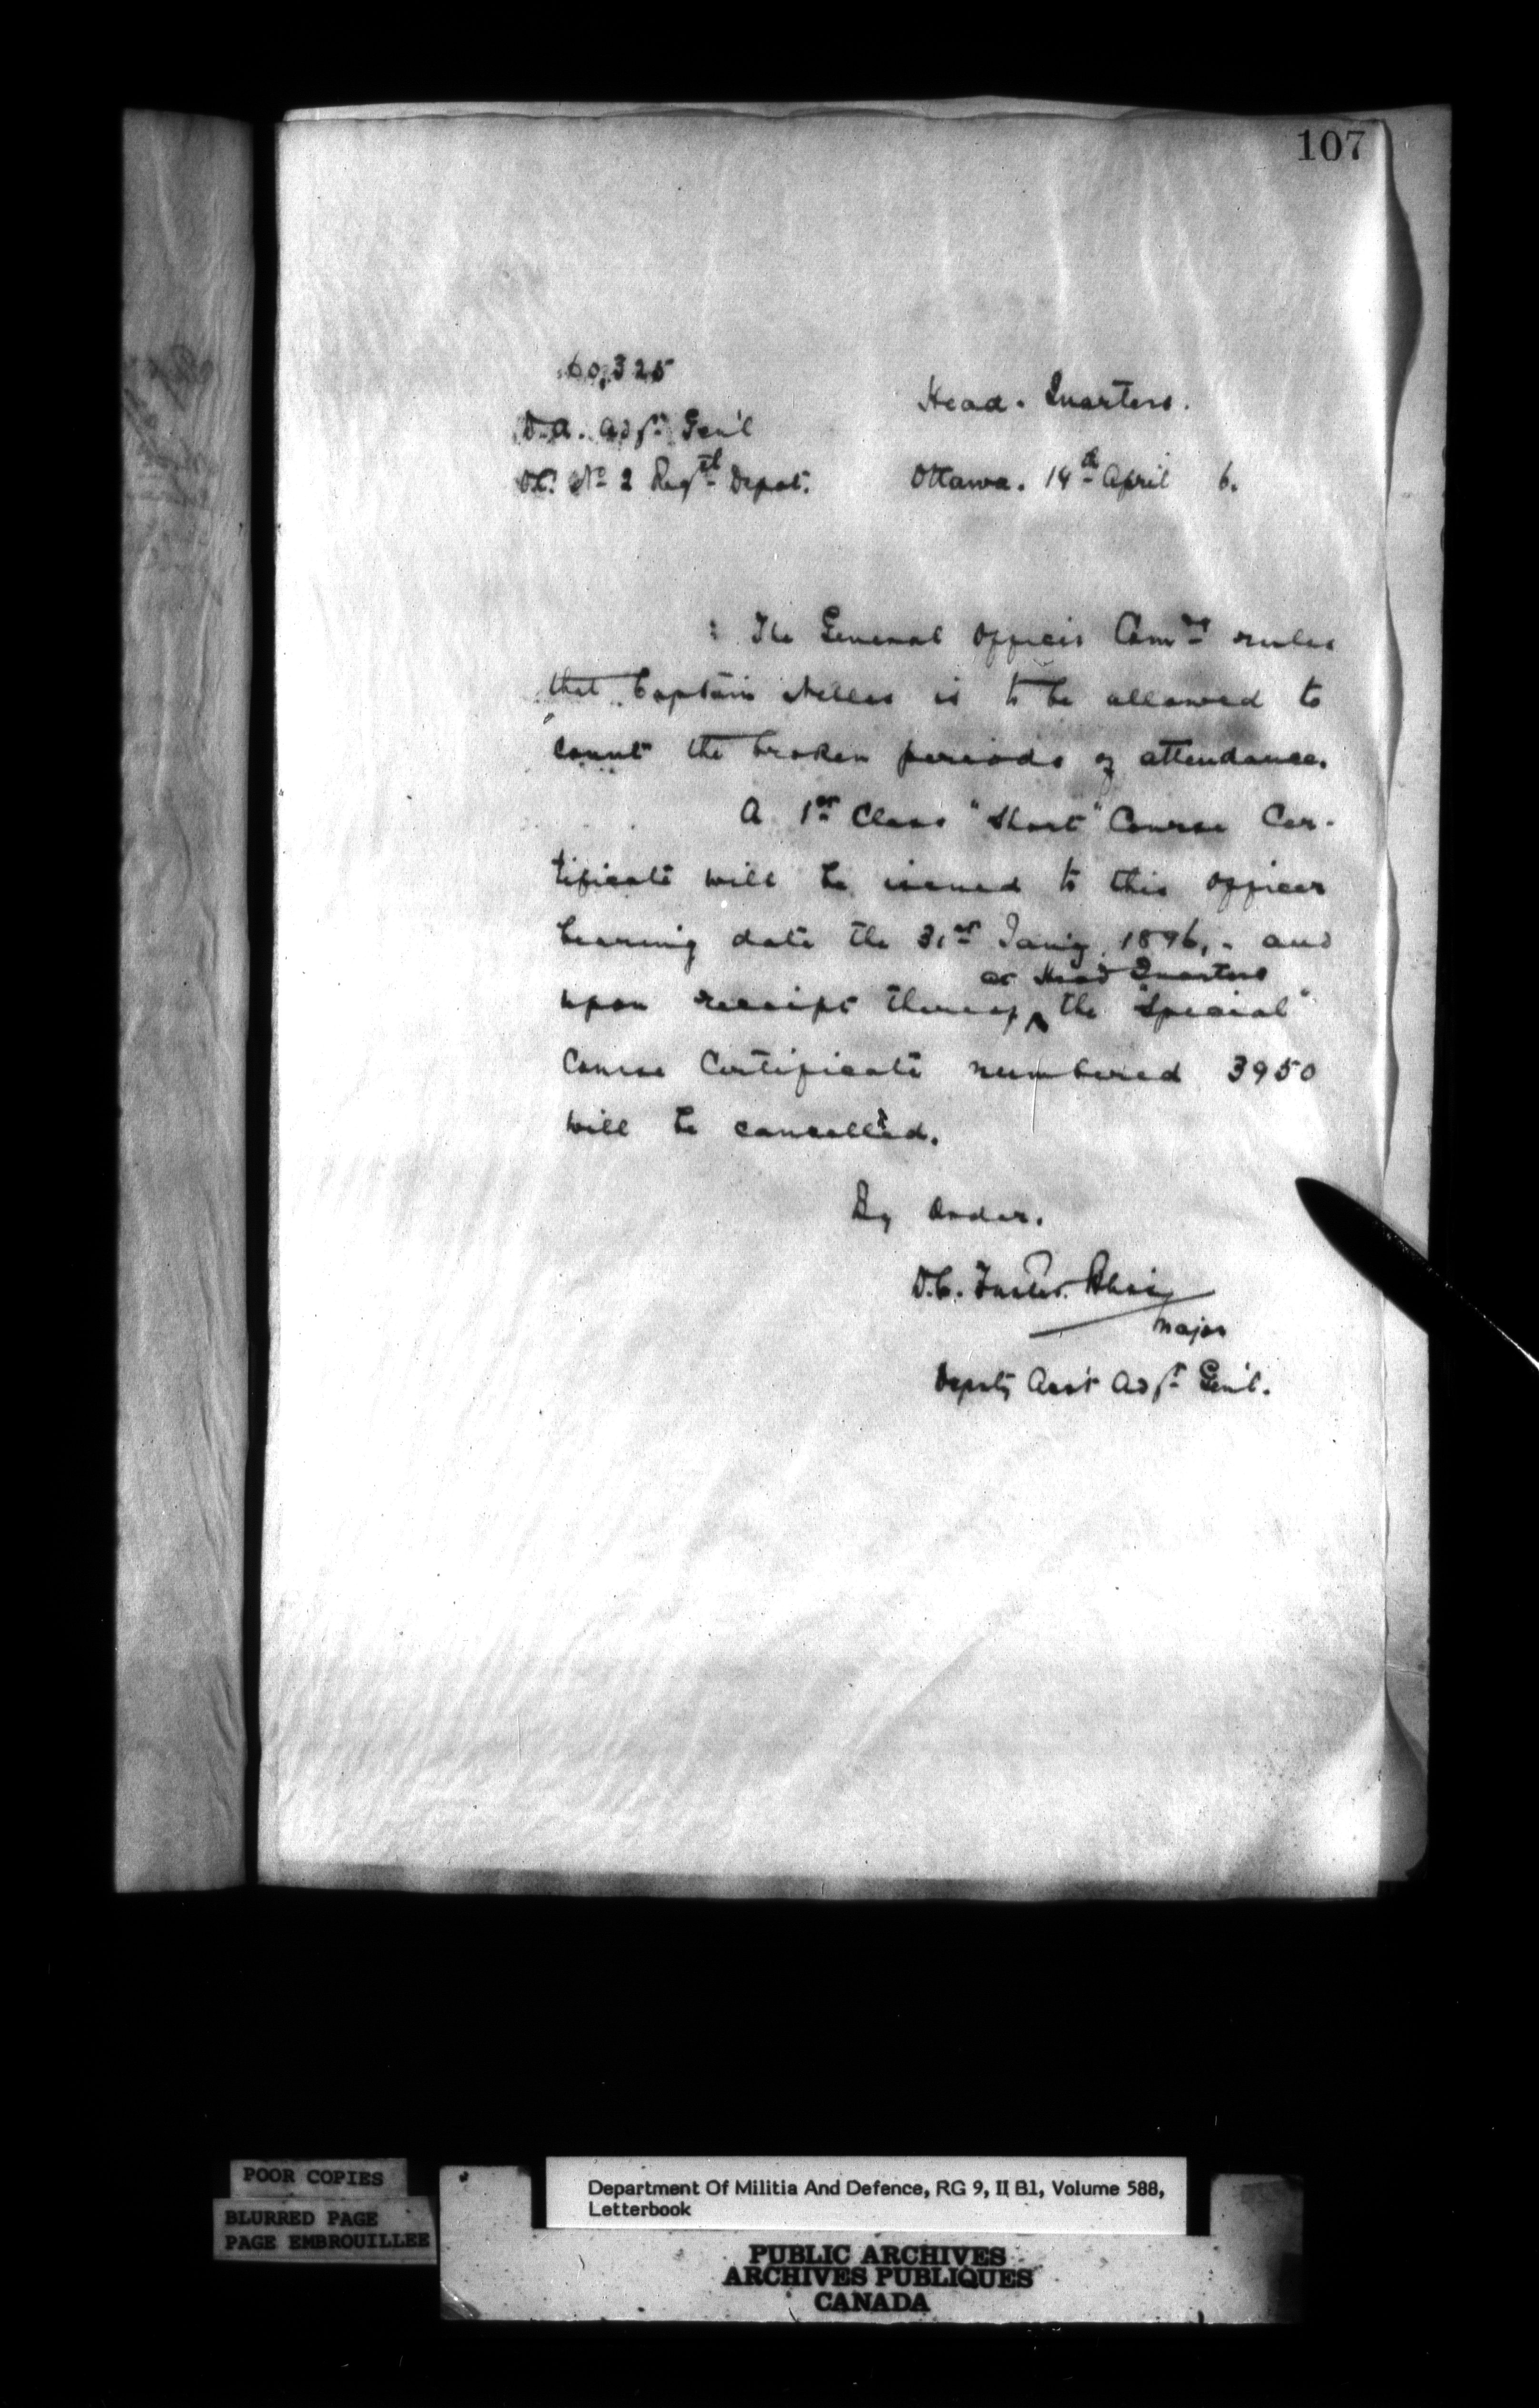 107
60,325
D.A. Adjt Gen'l
Head-Quarters.
O.C. No 2 Regtl Depot.
Ottawa. 14th April 6.
: The General Officer Comdg rules
that Captain Nelles is to be allowed to
count the broken periods of attendance.
A 1st Class "Short" Course Cer-
tificate will be issued to this Officer
bearing date the 31st Jan'y. 1896, - and
at Head Quarters
upon receipt thereof, the "Special"
Course Certificate numbered 3950
will be cancelled.
By Order.
D.C. Forster Bliss
Major
Deputy Ass't Adjt Gen'l.
POOR COPIES
BLURRED PAGE
PAGE EMBROUILLEE
Department Of Militia And Defence, RG 9, II B1, Volume 588,
Letterbook
PUBLIC ARCHIVES
ARCHIVES PUBLIQUES
CANADA